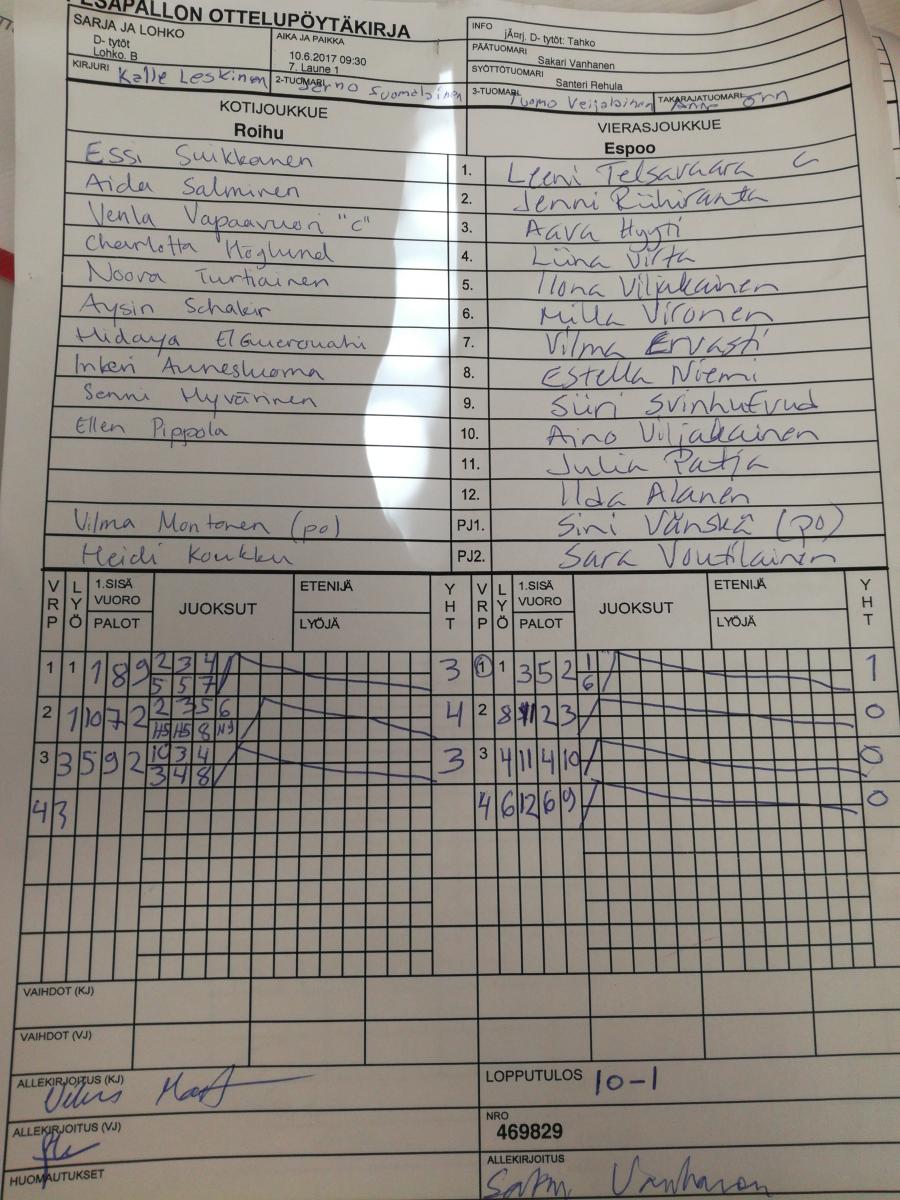 PESÄPALLON OTTELUPÖYTÄKIRJA
SARJA JA LOHKO
D- tytöt
Lohko. B
AIKA JA PAIKKA
10.6.2017 09:30
7. Laune 1
INFO
jÃ¤rj. D- tytöt: Tahko
PÄÄTUOMARI
Sakari Vanhanen
SYÖTTÖTUOMARI
Santeri Rehula
KIRJURI Kalle Leskinen
2-TUOMARI Jarno Suomalainen
3-TUOMARI Tuomo Veijalainen
TAKARAJATUOMARI Örn
KOTIJOUKKUE
Roihu
VIERASJOUKKUE
Espoo
Essi Suikkanen 1. Leeni Telsavaara C
Aida Salminen 2. Jenni Riihiranta
Venla Vapaavuori "C" 3. Aava Hyyti
Charlotta Höglund 4. Liina Virta
Noora Turtiainen 5. Ilona Viljakainen
Aysin Schakir 6. Milla Vironen
Hidaya 7. Vilma Ervasti
Inkeri Annesluoma 8. Estella Niemi
Senni Hyvärinen 9. Siiri Svinhufvud
Ellen Pippola 10. Aino Viljakainen
11. Julia Patja
12. Ilda Alanen
Vilma Montonen (po) PJ1. Sini Vänskä (po)
Heidi Koukku PJ2. Sara Voutilainen
VRP LYÖ 1.SISÄ VUORO PALOT JUOKSUT ETENIJÄ LYÖJÄ YHT VRP LYÖ 1.SISÄ VUORO PALOT JUOKSUT ETENIJÄ LYÖJÄ YHT
1 1 1 8 9 2 3 4 3 1 1 3 5 2 1 1
5 5 7 6
2 1 10 7 2 2 3 5 6 4 2 8 11 2 3 0
H5 H5 8 H9
3 3 5 9 2 10 3 4 3 3 4 11 4 10 0
3 4 8
4 3 4 6 12 6 9 0
VAIHDOT (KJ)
VAIHDOT (VJ)
ALLEKIRJOITUS (KJ)
LOPPUTULOS 10-1
ALLEKIRJOITUS (VJ)
NRO
469829
HUOMAUTUKSET
ALLEKIRJOITUS